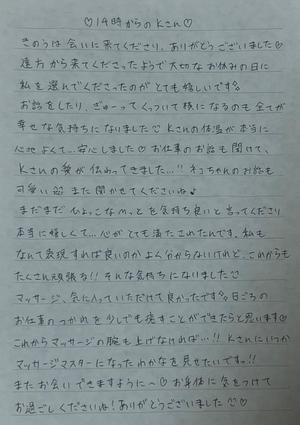 ♡14時からのKさん♡
きのうは会いに来てくださり、ありがとうございました♡
遠方から来てくださったようで大切なお休みの日に
私を選んでくださったのがとても嬉しいです。
お話をしたり、ぎゅーってくっついて横になるのも全てが
幸せな気持ちになりました♡Kさんの体温が本当に
心地よくて…安心しました♡お仕事のお話も聞けて、
Kさんの愛が伝わってきました…!!ネコちゃんのお話も
可愛い また聞かせてくださいね♪
まだまだひよっこなmっとを気持ち良いと言ってくださり
本当に嬉しくて…心がとても満たされたんです。私も
なんて表現すれば良いのかよく分からないけれど、これからも
たくさん頑張ろ!!そんな気持ちになりました♡
マッサージ、気に入っていただけて良かったです。日ごろの
お仕事のつかれを少しでも癒すことができたらと思います♡
これからマッサージの腕も上げなければ…!!Kさんにいつか
マッサージマスターになったわかなを見せたいですっ!!
またお会いできますように〜♡お身体に気をつけて
お過ごしくださいね!ありがとうございました♡